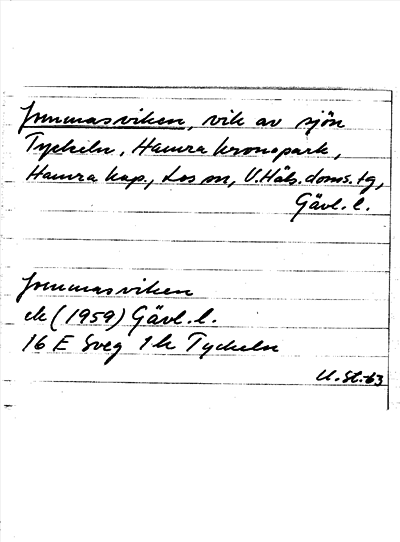 Jommasviken, vik av sjön
Tyckeln, Hamra kronopark,
Hamra kap., Los sn, V.Häls.doms.tg,
Gävl.l.
Jommasviken
ek (1959) Gävl.l.
16 E Sveg 1h Tyckeln
U.St.-63